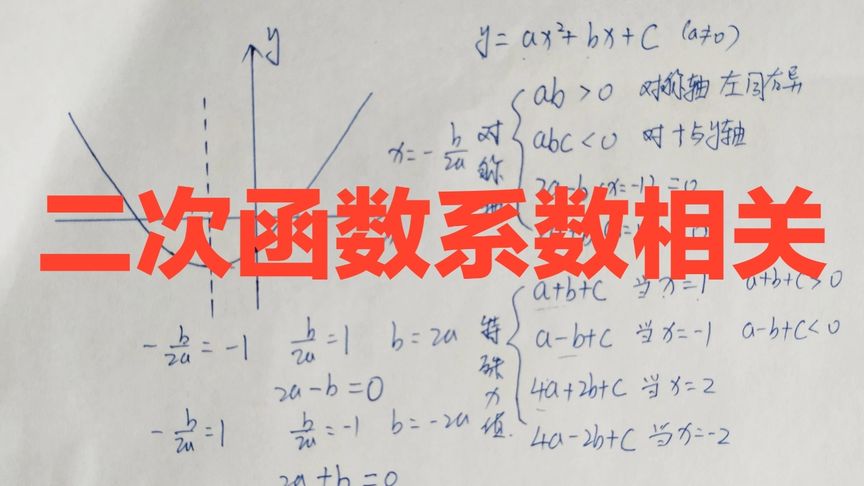 y
y=ax²+bx+c (a≠0)
ab>0 对称轴 左同右异
x=-b/2a 对称
abc<0 对 十与y轴
2a-b (x=-1) =0
二次函数系数相关
a+b+c 当x=1 a+b+c>0
特殊x值.
a-b+c 当x=-1 a-b+c<0
4a+2b+c 当x=2
4a-2b+c 当x=-2
-b/2a=-1 b/2a=1 b=2a
2a-b=0
-b/2a=1 b/2a=-1 b=-2a
2a+b=0